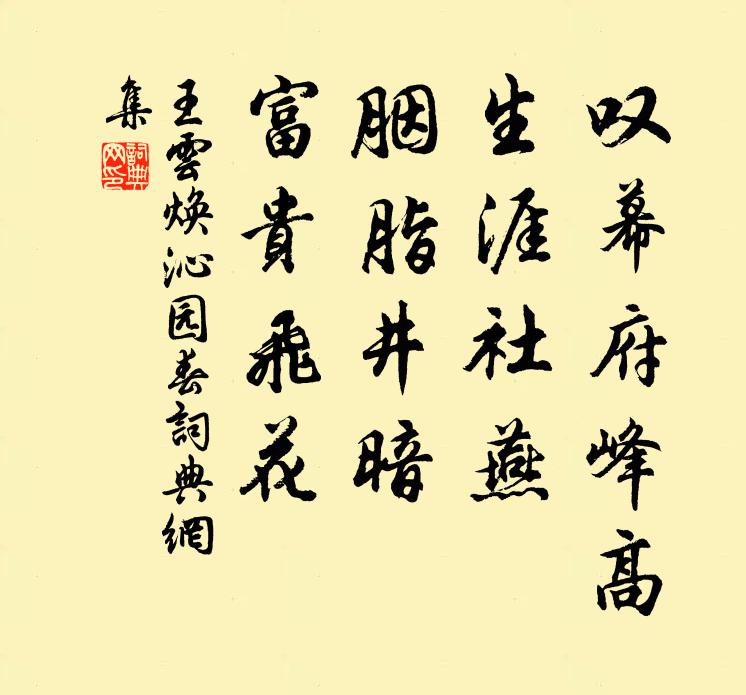 叹幕府峰高
生涯社燕
胭脂井暗
富貴飛花
王雲焕沁园春詞典網
集
詞典網印